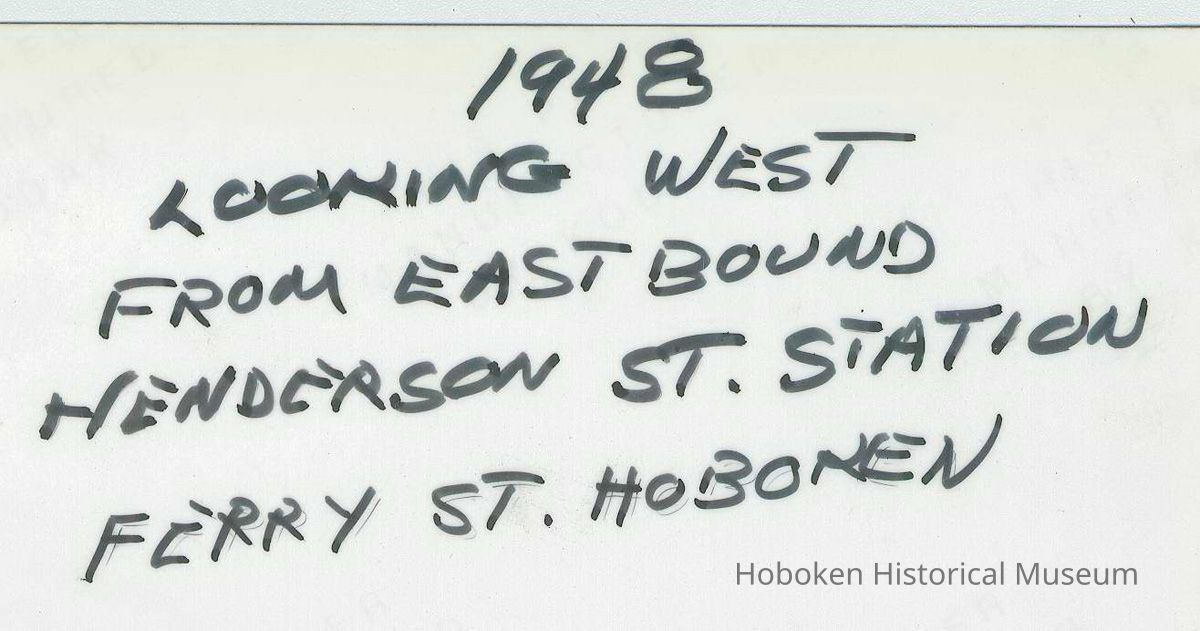 1948
LOOKING WEST
FROM EAST BOUND
HENDERSON ST. STATION
FERRY ST. HOBOKEN
Hoboken Historical Museum